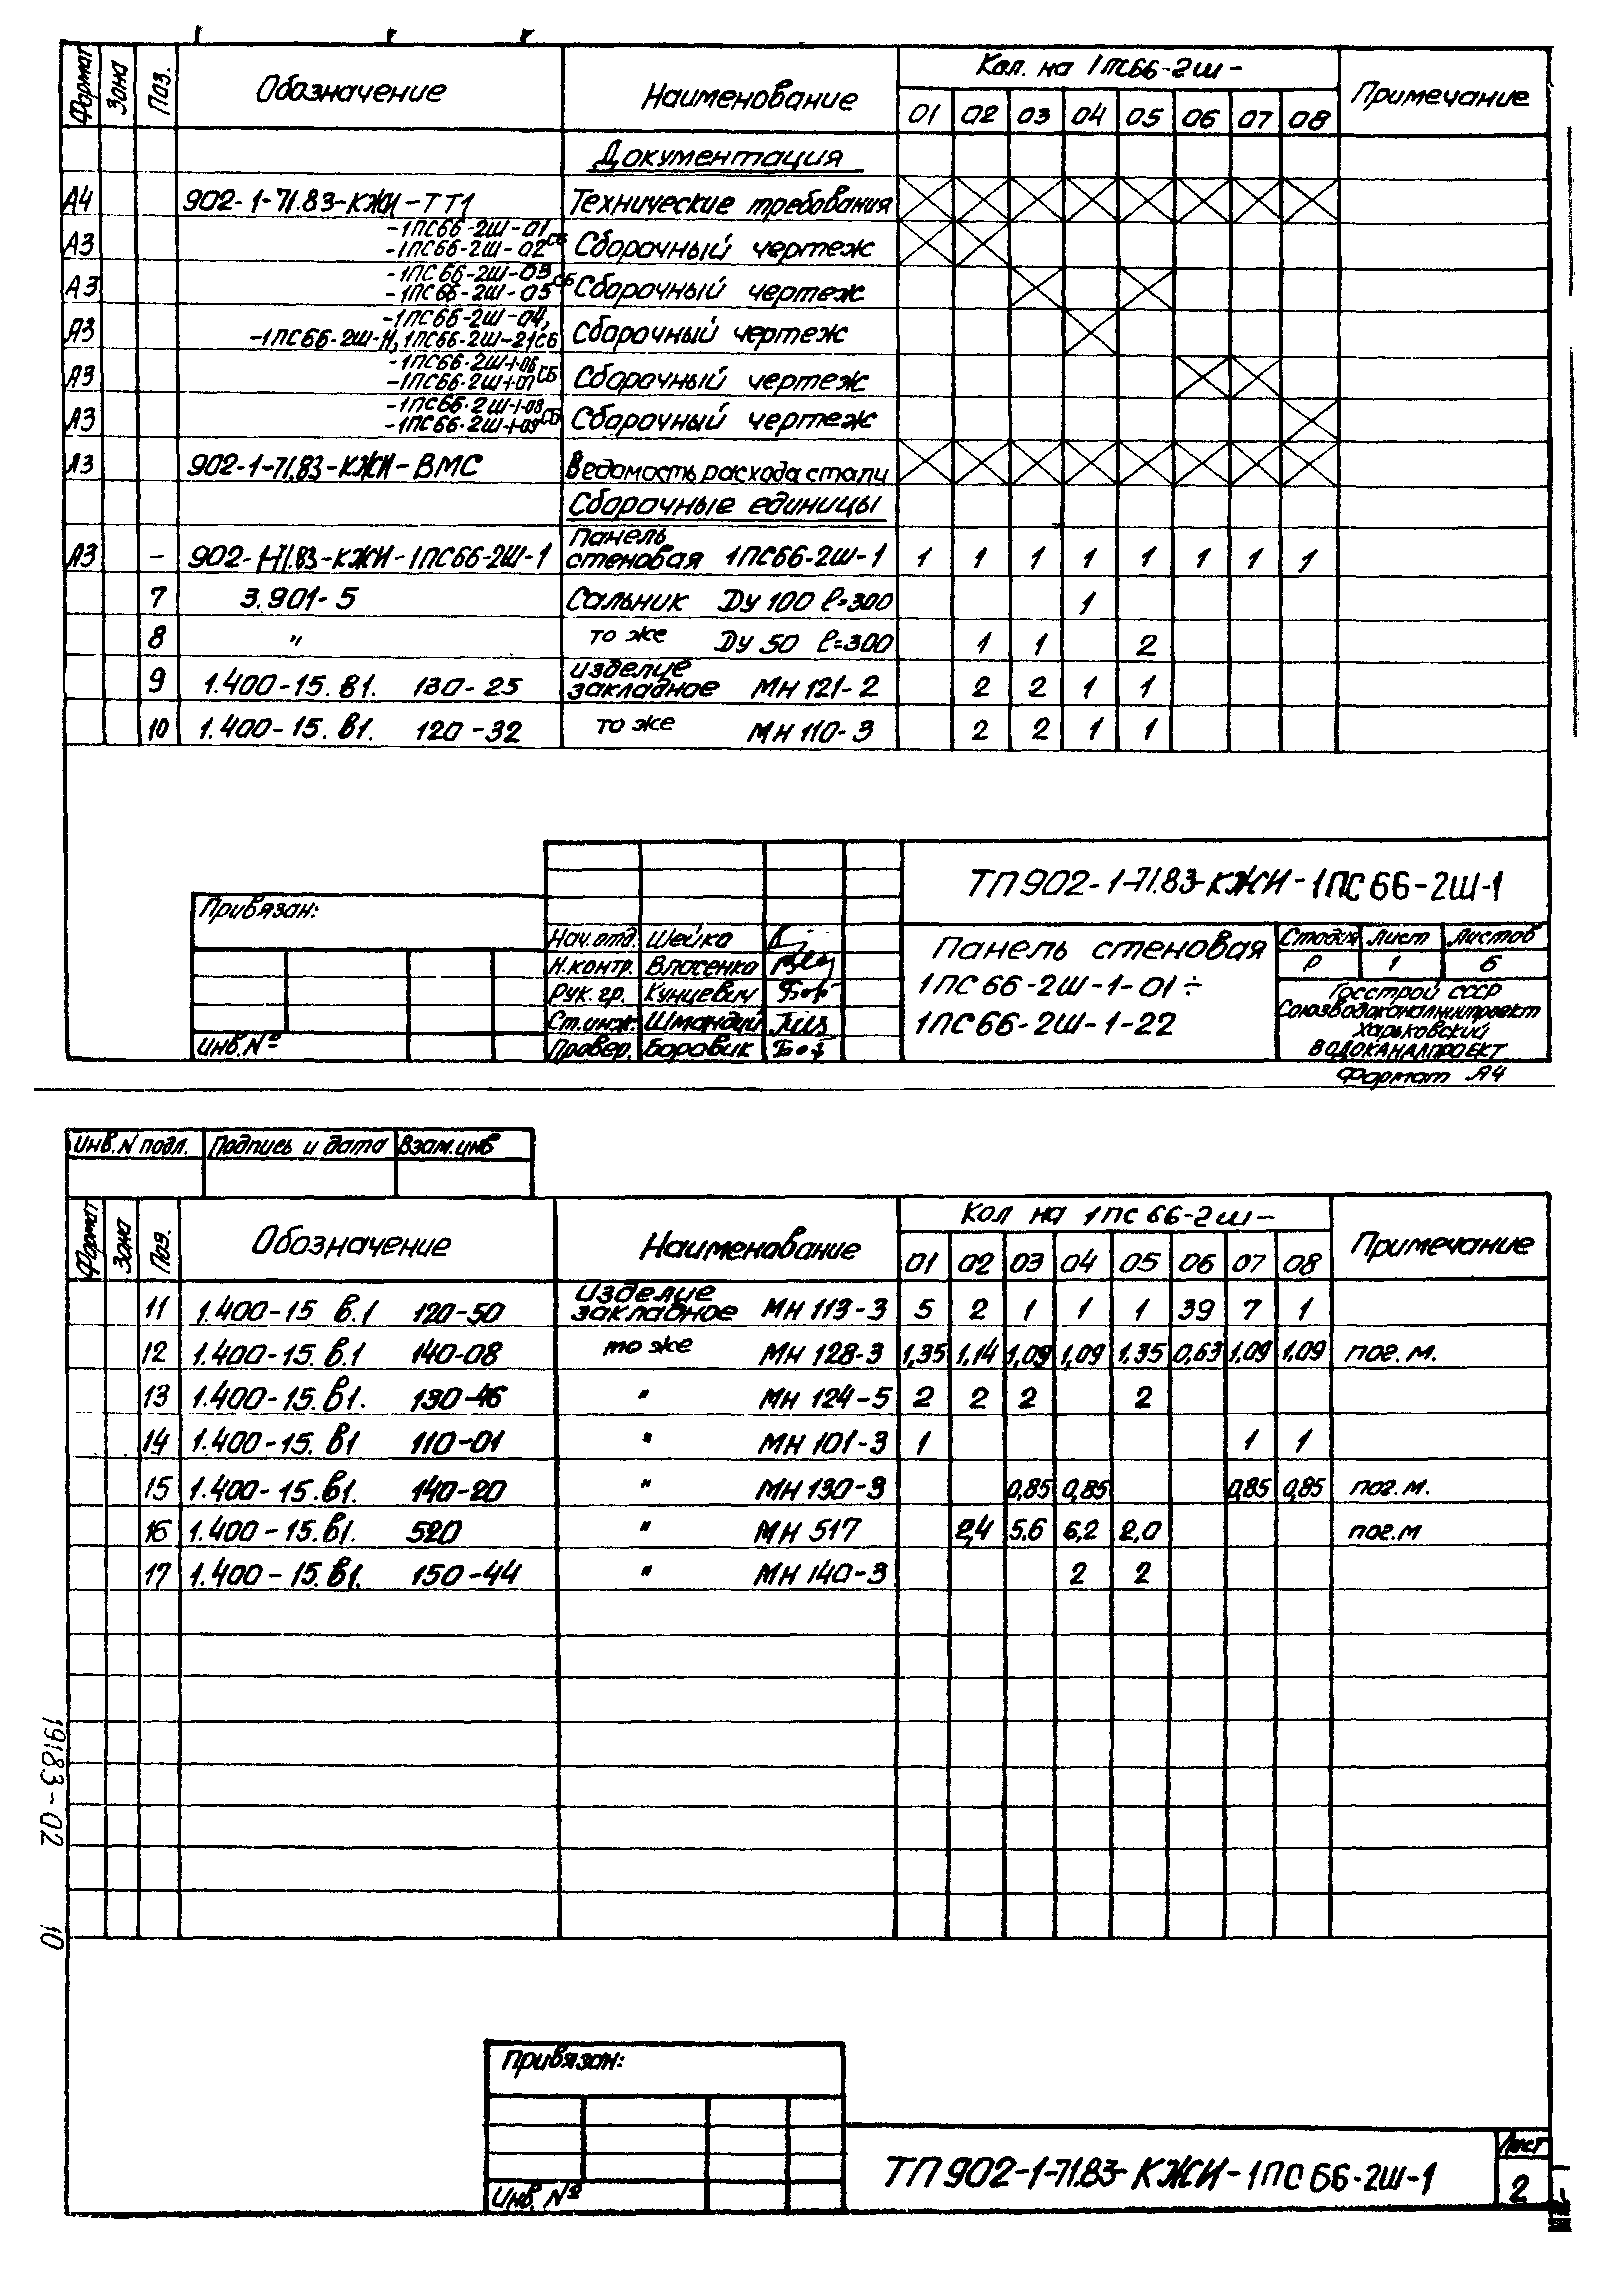 Формат Зона Поз. Обозначение Наименование Кол. на 1ПС66-2Ш- Примечание
01 02 03 04 05 06 07 08
Документация
А4 902-1-71.83-КЖИ-ТТ1 Технические требования
А3 -1ПС66-2Ш-01 -1ПС66-2Ш-02 СБ Сборочный чертеж
А3 -1ПС66-2Ш-03 -1ПС66-2Ш-05 СБ Сборочный чертеж
А3 -1ПС66-2Ш-04, -1ПС66-2Ш-11, 1ПС66-2Ш-21СБ Сборочный чертеж
А3 -1ПС66-2Ш-1-06 -1ПС66-2Ш-1-07 СБ Сборочный чертеж
А3 -1ПС66-2Ш-1-08 -1ПС66-2Ш-1-09 СБ Сборочный чертеж
А3 902-1-71.83-КЖИ-ВМС Ведомость расхода стали
Сборочные единицы
А3 - 902-1-71.83-КЖИ-1ПС66-2Ш-1 Панель стеновая 1ПС66-2Ш-1 1 1 1 1 1 1 1 1
7 3.901-5 Сальник Ду 100 ℓ=300 1
8 " то же Ду 50 ℓ=300 1 1 2
9 1.400-15.В1. 130-25 изделие закладное МН 121-2 2 2 1 1
10 1.400-15.В1. 120-32 то же МН 110-3 2 2 1 1
ТП 902-1-71.83-КЖИ-1ПС66-2Ш-1
Привязан:
Нач.отд. Шейко
Н.контр. Власенко
Рук.гр. Кунцевич
Ст.инж. Шмандий
Провер. Боровик
Инв.№
Панель стеновая
1ПС66-2Ш-1-01÷
1ПС66-2Ш-1-22
Стадия Лист Листов
Р 1 6
Госстрой СССР
Союзводоканалниипроект
Харьковский
ВОДОКАНАЛПРОЕКТ
Формат А4
Инв.N подл. Подпись и дата Взам.инв
Формат Зона Поз. Обозначение Наименование Кол на 1ПС66-2Ш- Примечание
01 02 03 04 05 06 07 08
11 1.400-15 В.1 120-50 изделие закладное МН 113-3 5 2 1 1 1 39 7 1
12 1.400-15.В.1 140-08 то же МН 128-3 1,35 1,14 1,09 1,09 1.35 0,63 1,09 1,09 пог.м.
13 1.400-15.В1. 130-46 " МН 124-5 2 2 2 2
14 1.400-15.В1 110-01 " МН 101-3 1 1 1
15 1.400-15.В1. 140-20 " МН 130-3 0,85 0,85 0,85 0,85 пог.м.
16 1.400-15.В1. 520 " МН 517 2,4 5.6 6,2 2,0 пог.м
17 1.400-15.В1. 150-44 " МН 140-3 2 2
19183-02 10
Привязан:
Инв.№
ТП 902-1-71.83-КЖИ-1ПС66-2Ш-1
Лист
2